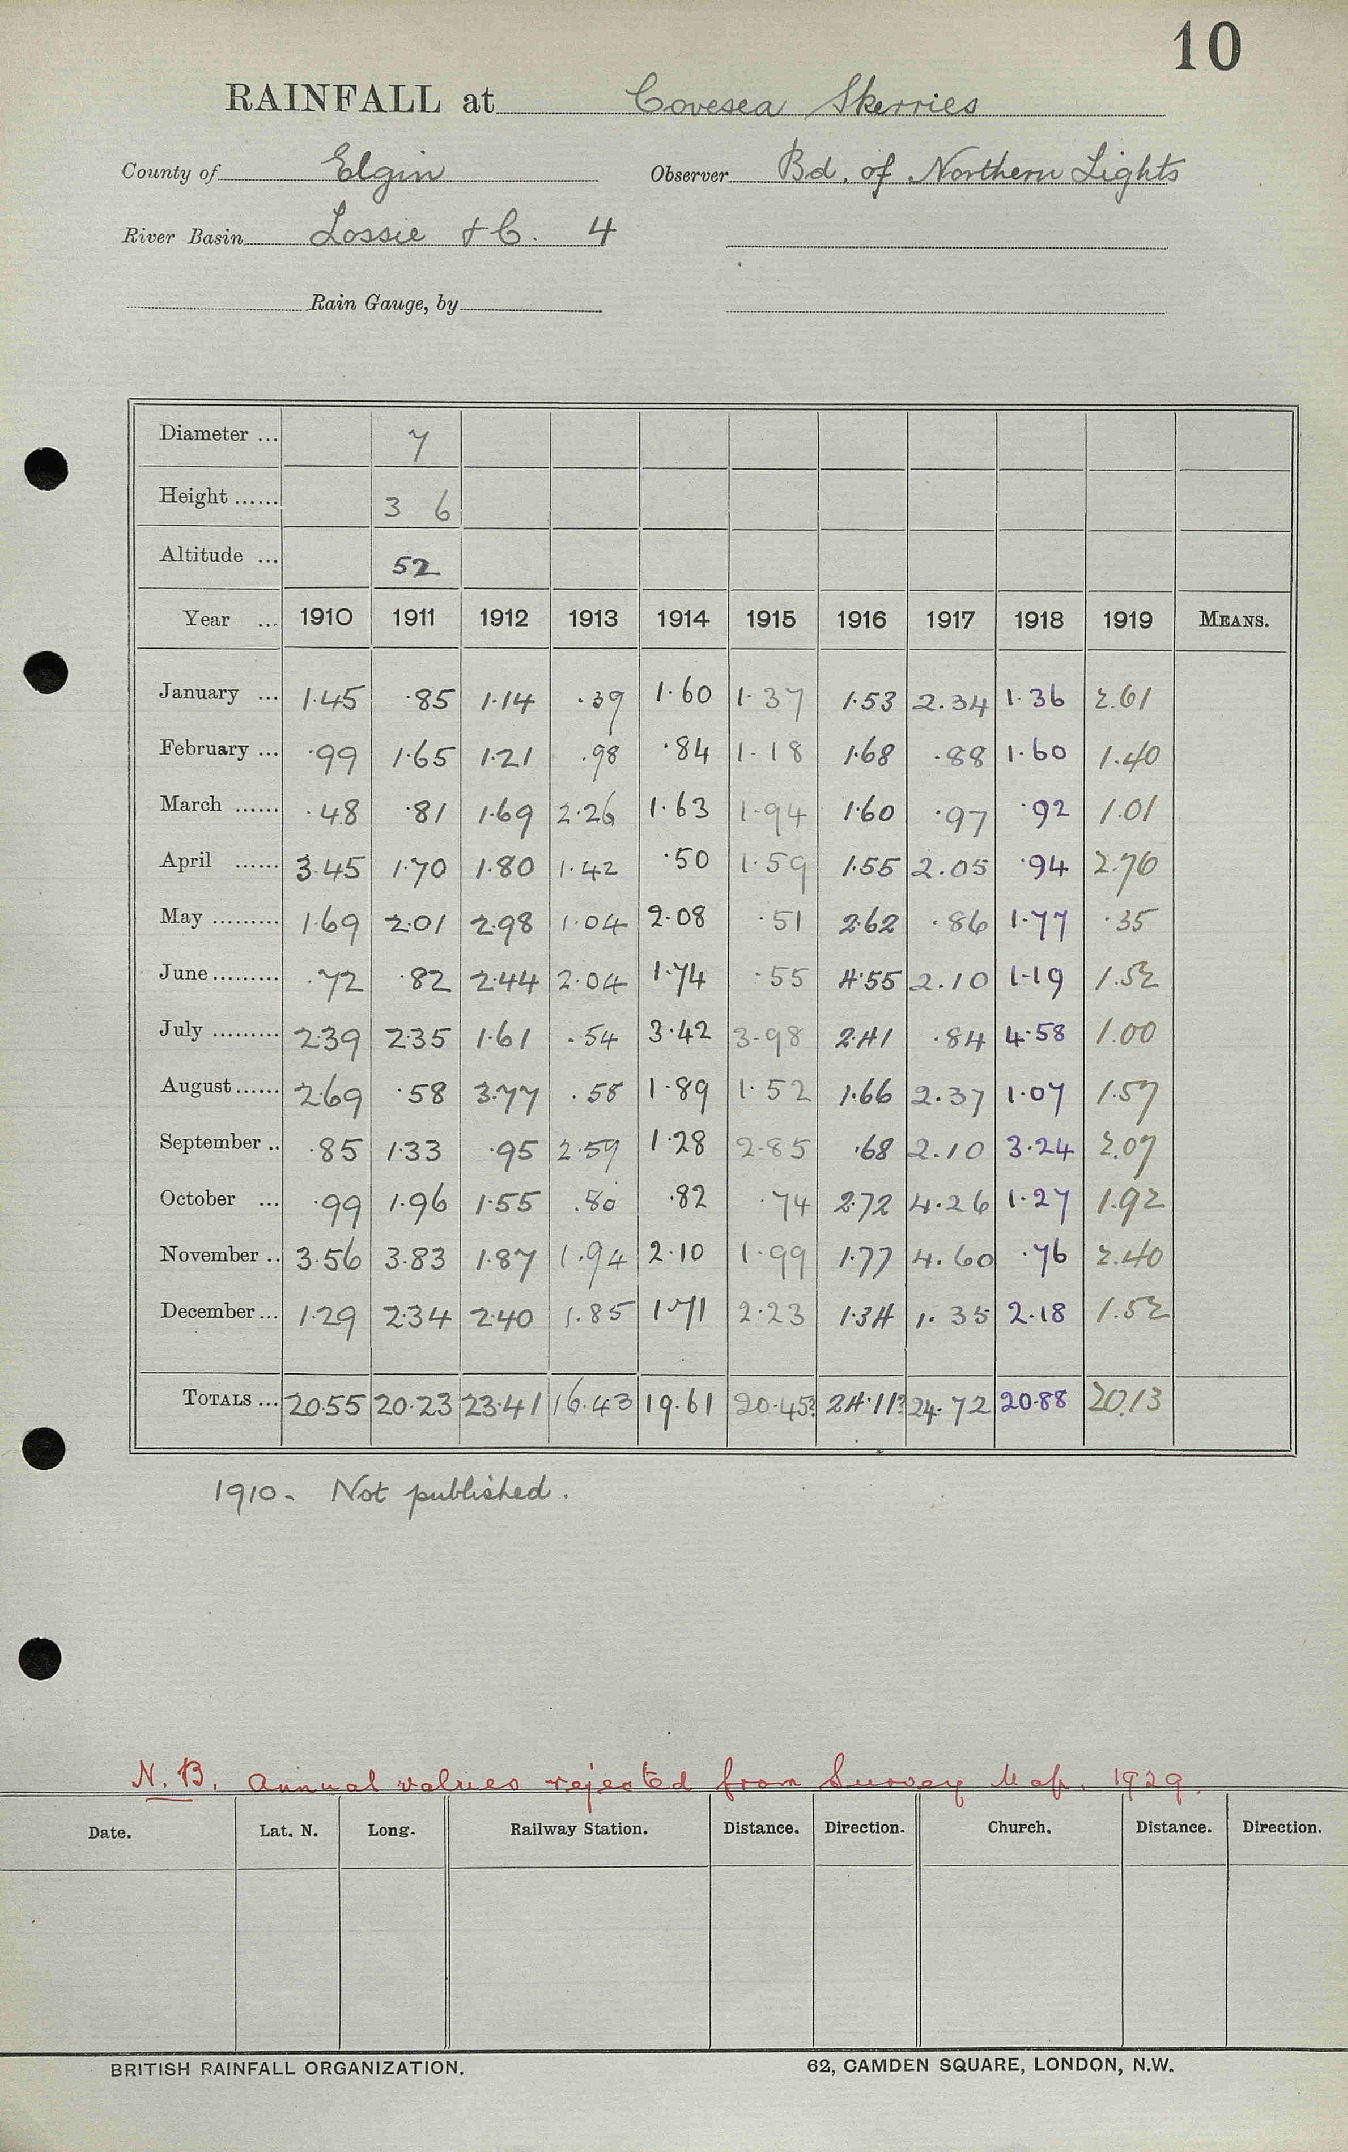 10
RAINFALL at Covesea Skerries
County of Elgin Observer Bd. of Northern Lights
River Basin Lossie &C. 4
Rain Gauge, by
Diameter ... 7
Height ...... 3 6
Altitude ... 52
Year ... 1910 1911 1912 1913 1914 1915 1916 1917 1918 1919 MEANS.
January ... 1.45 .85 1.14 .39 1.60 1.37 1.53 2.34 1.36 2.61
February ... .99 1.65 1.21 .98 .84 1.18 1.68 .88 1.60 1.40
March ...... .48 .81 1.69 2.26 1.63 1.94 1.60 .97 .92 1.01
April ...... 3.45 1.70 1.80 1.42 .50 1.59 1.55 2.05 .94 2.76
May ......... 1.69 2.01 2.98 1.04 2.08 .51 2.62 .86 1.77 .35
June ......... .72 .82 2.44 2.04 1.74 .55 4.55 2.10 1.19 1.52
July ......... 2.39 2.35 1.61 .54 3.42 3.98 2.41 .84 4.58 1.00
August ...... 2.69 .58 3.77 .58 1.89 1.52 1.66 2.37 1.07 1.57
September .. .85 1.33 .95 2.59 1.28 2.85 .68 2.10 3.24 2.07
October ... .99 1.96 1.55 .80 .82 .74 2.72 4.26 1.27 1.92
November .. 3.56 3.83 1.87 1.94 2.10 1.99 1.77 4.60 .76 2.40
December ... 1.29 2.34 2.40 1.85 1.71 2.23 1.34 1.35 2.18 1.52
TOTALS ... 20.55 20.23 23.41 16.43 19.61 20.45? 24.11? 24.72 20.88 20.13
1910 - Not published.
N.B. Annual values rejected from Survey Map. 1929.
Date. Lat. N. Long. Railway Station. Distance. Direction. Church. Distance. Direction.
BRITISH RAINFALL ORGANIZATION. 62, CAMDEN SQUARE, LONDON, N.W.